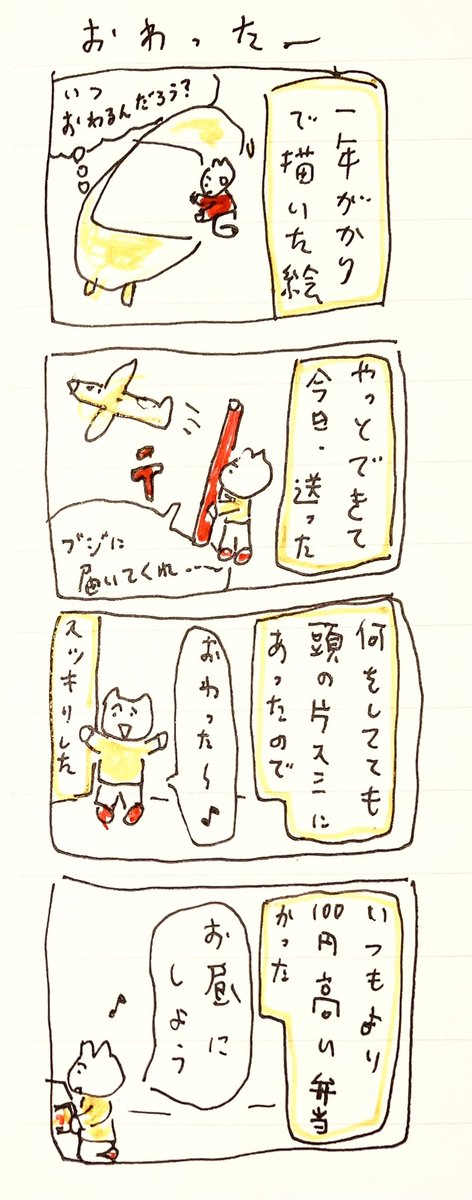 おわったー
一年がかり
で描いた絵
いつ
おわるんだろう?
やっとできて
今日・送った
〒
ブジに
届いてくれ〜
何をしてても
頭の片スミに
あったので
おわった〜♪
スッキリした
いつもより
100円高い弁当
かった
お昼に
しよう
♪